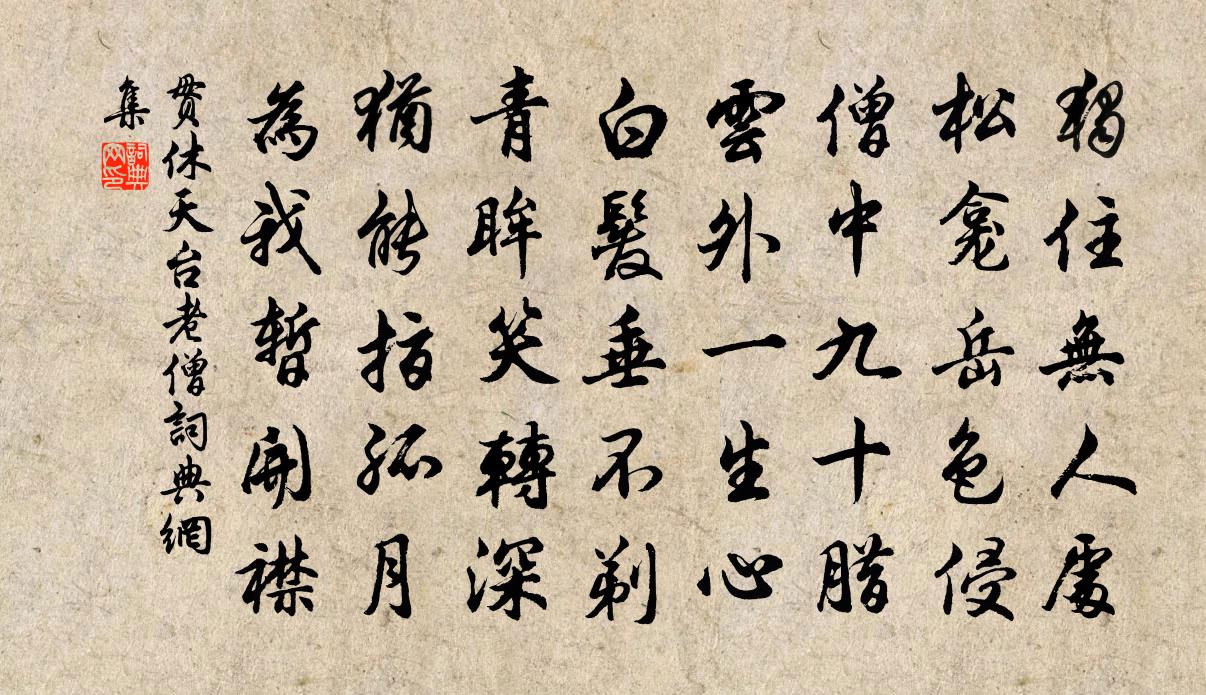 獨住無人處
松龕岳色侵
僧中九十腊
雲外一生心
白髮垂不剃
青眸笑轉深
猶能指孤月
為我暫開襟
貫休天台老僧詞典網
集
詞典
网印